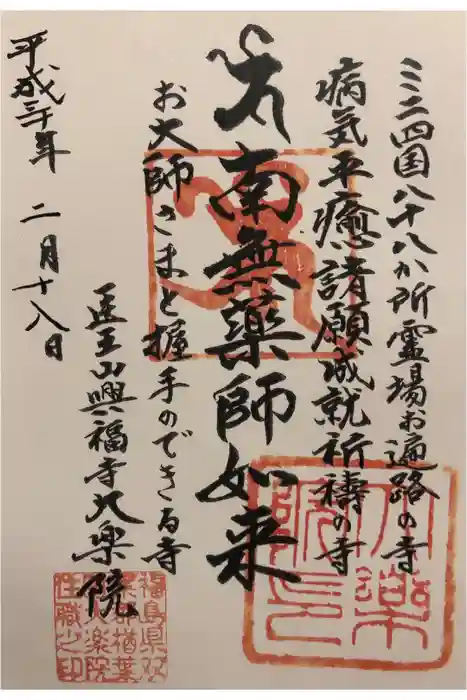 ミニ四国八十八か所霊場お遍路の寺
病気平癒諸願成就祈禱の寺
南無薬師如来
お大師さまと握手のできる寺
医王山興福寺大楽院
平成三十年 二月十八日
大楽院
福島県双
葉郡楢葉
大楽院
住職之印